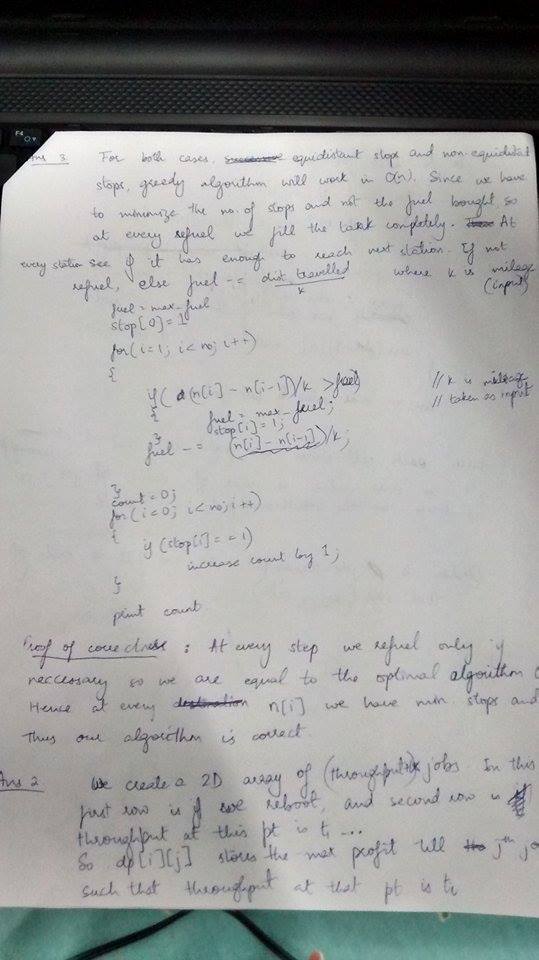 F4
Ans 3. For both cases, successive equidistant stops and non-equidistant
stops, greedy algorithm will work in O(n). Since we have
to minimize the no. of stops and not the fuel bought, so
at every refuel we fill the tank completely. At
every station see if it has enough to reach next station. If not
refuel, else fuel -= dist travelled / k where k is mileage
(input)
fuel = max-fuel
stop[0] = 1
for(i=1; i<no; i++)
{
if( (n[i] - n[i-1])/k > fuel) // k is mileage
{ fuel = max_fuel; // taken as input
stop[i] = 1;
}
fuel -= (n[i] - n[i-1])/k;
}
count = 0;
for(i=0; i<no; i++)
{
if (stop[i] == 1)
increase count by 1;
}
print count
Proof of correctness : At every step we refuel only if
neccessary so we are equal to the optimal algorithm
Hence at every destination n[i] we have min. stops and
Thus our algorithm is correct.
Ans 2. We create a 2D array of (throughput) * jobs. In this
first row is if we reboot, and second row is
throughput at this pt is t1 ...
So dp[i][j] stores the max profit till jth
such that throughput at that pt is ti